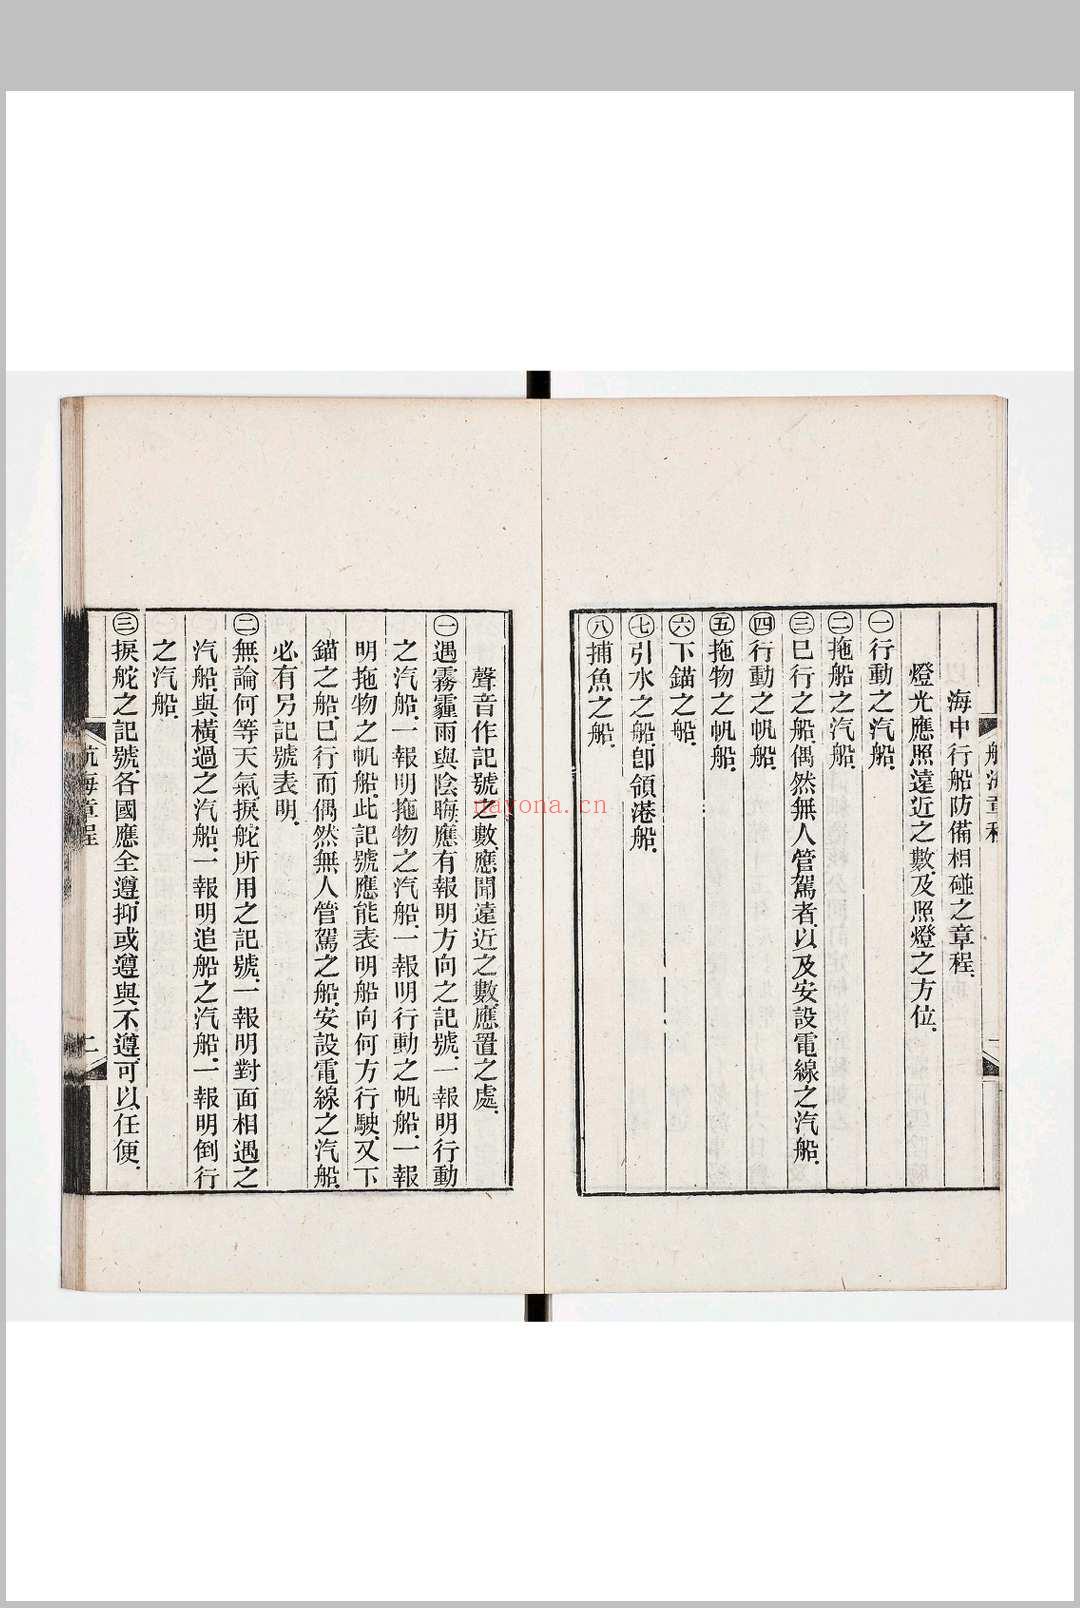 航海章程
一
海中行船防備相碰之章程.
燈光應照遠近之數.及照燈之方位.
㊀行動之汽船.
㊁拖船之汽船.
㊂已行之船.偶然無人管駕者.以及安設電線之汽船.
㊃行動之帆船.
㊄拖物之帆船.
㊅下錨之船.
㊆引水之船.卽領港船.
㊇捕魚之船.
聲音作記號之數.應聞遠近之數.應置之處.
㊀遇霧霾雨與陰晦.應有報明方向之記號.一報明行動
之汽船.一報明拖物之汽船.一報明行動之帆船.一報
明拖物之帆船.此記號應能表明船向何方行駛.又下
錨之船.已行而偶然無人管駕之船.安設電線之汽船.
必有另記號表明.
㊁無論何等天氣.捩舵所用之記號.一報明對面相遇之
汽船.與橫過之汽船.一報明追船之汽船.一報明倒行
之汽船.
㊂捩舵之記號.各國應全遵.抑或遵與不遵.可以任便.
航海章程
二
nayona.cn